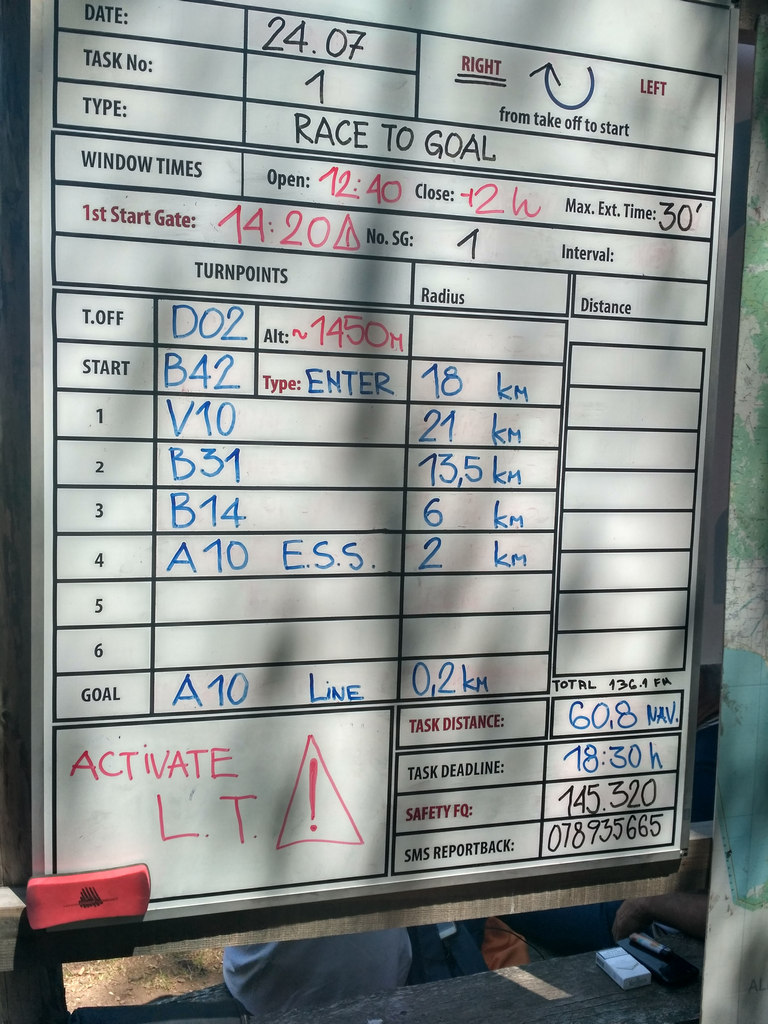 DATE: 24.07
RIGHT LEFT
from take off to start
TASK No: 1
TYPE: RACE TO GOAL
WINDOW TIMES Open: 12:40 Close: +2h Max. Ext. Time: 30'
1st Start Gate: 14:20 No. SG: 1 Interval:
TURNPOINTS Radius Distance
T.OFF D02 Alt: ~1450M
START B42 Type: ENTER 18 KM
1 V10 21 KM
2 B31 13,5 KM
3 B14 6 KM
4 A10 E.S.S. 2 KM
5
6
GOAL A10 LINE 0,2 KM
TOTAL 136.1 KM
TASK DISTANCE: 60,8 NAV.
TASK DEADLINE: 18:30 h
SAFETY FQ: 145.320
SMS REPORTBACK: 078935665
ACTIVATE
L.T. !